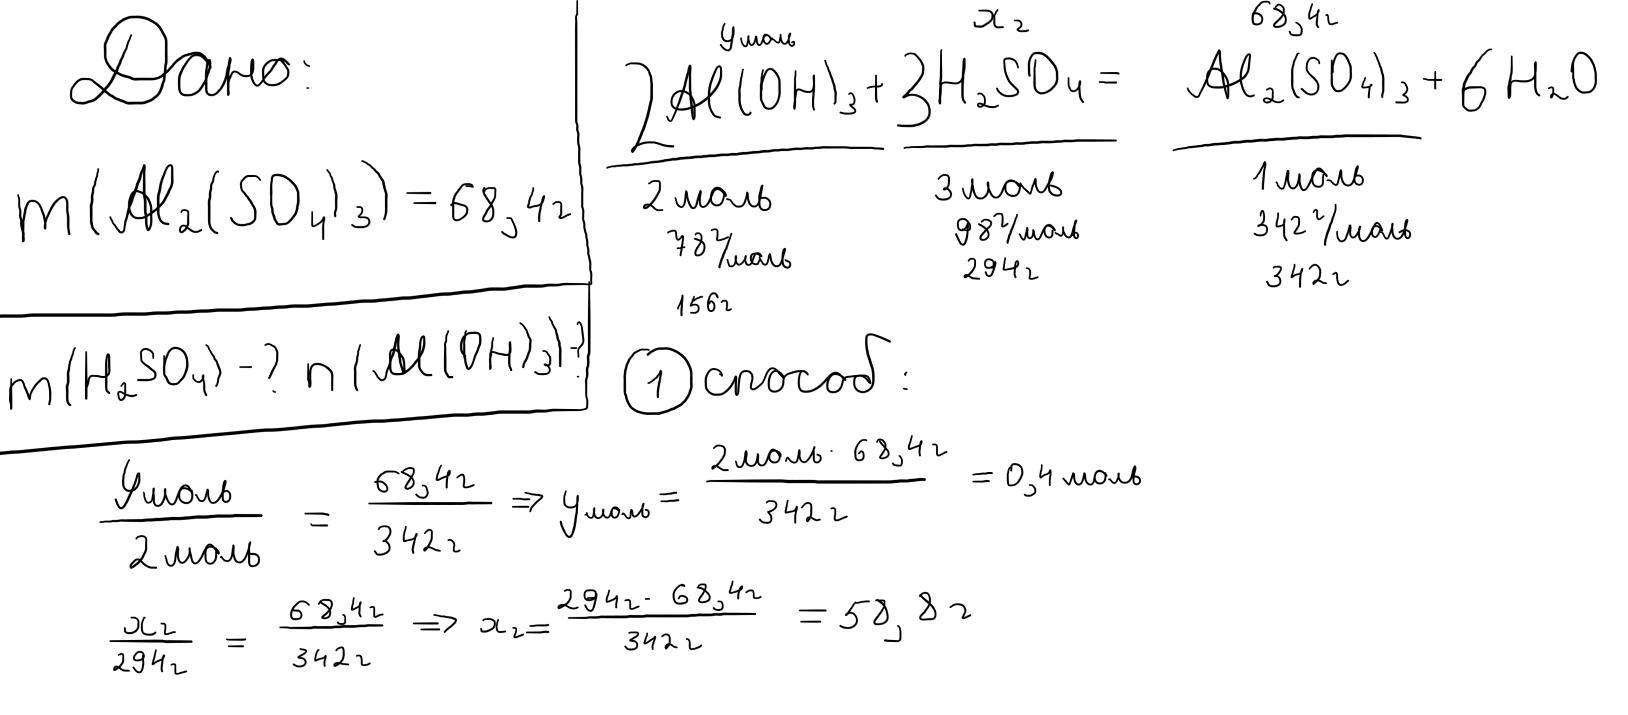 Дано:
m(Al₂(SO₄)₃) = 68,4г
m(H₂SO₄) - ? n(Al(OH)₃) - ?
y моль x г 68,4г
2Al(OH)₃ + 3H₂SO₄ = Al₂(SO₄)₃ + 6H₂O
2 моль 3 моль 1 моль
78 г/моль 98 г/моль 342 г/моль
156г 294г 342г
1 способ:
y моль / 2 моль = 68,4г / 342г ⇒ y моль = 2 моль · 68,4г / 342г = 0,4 моль
x г / 294г = 68,4г / 342г ⇒ x г = 294г · 68,4г / 342г = 58,8г